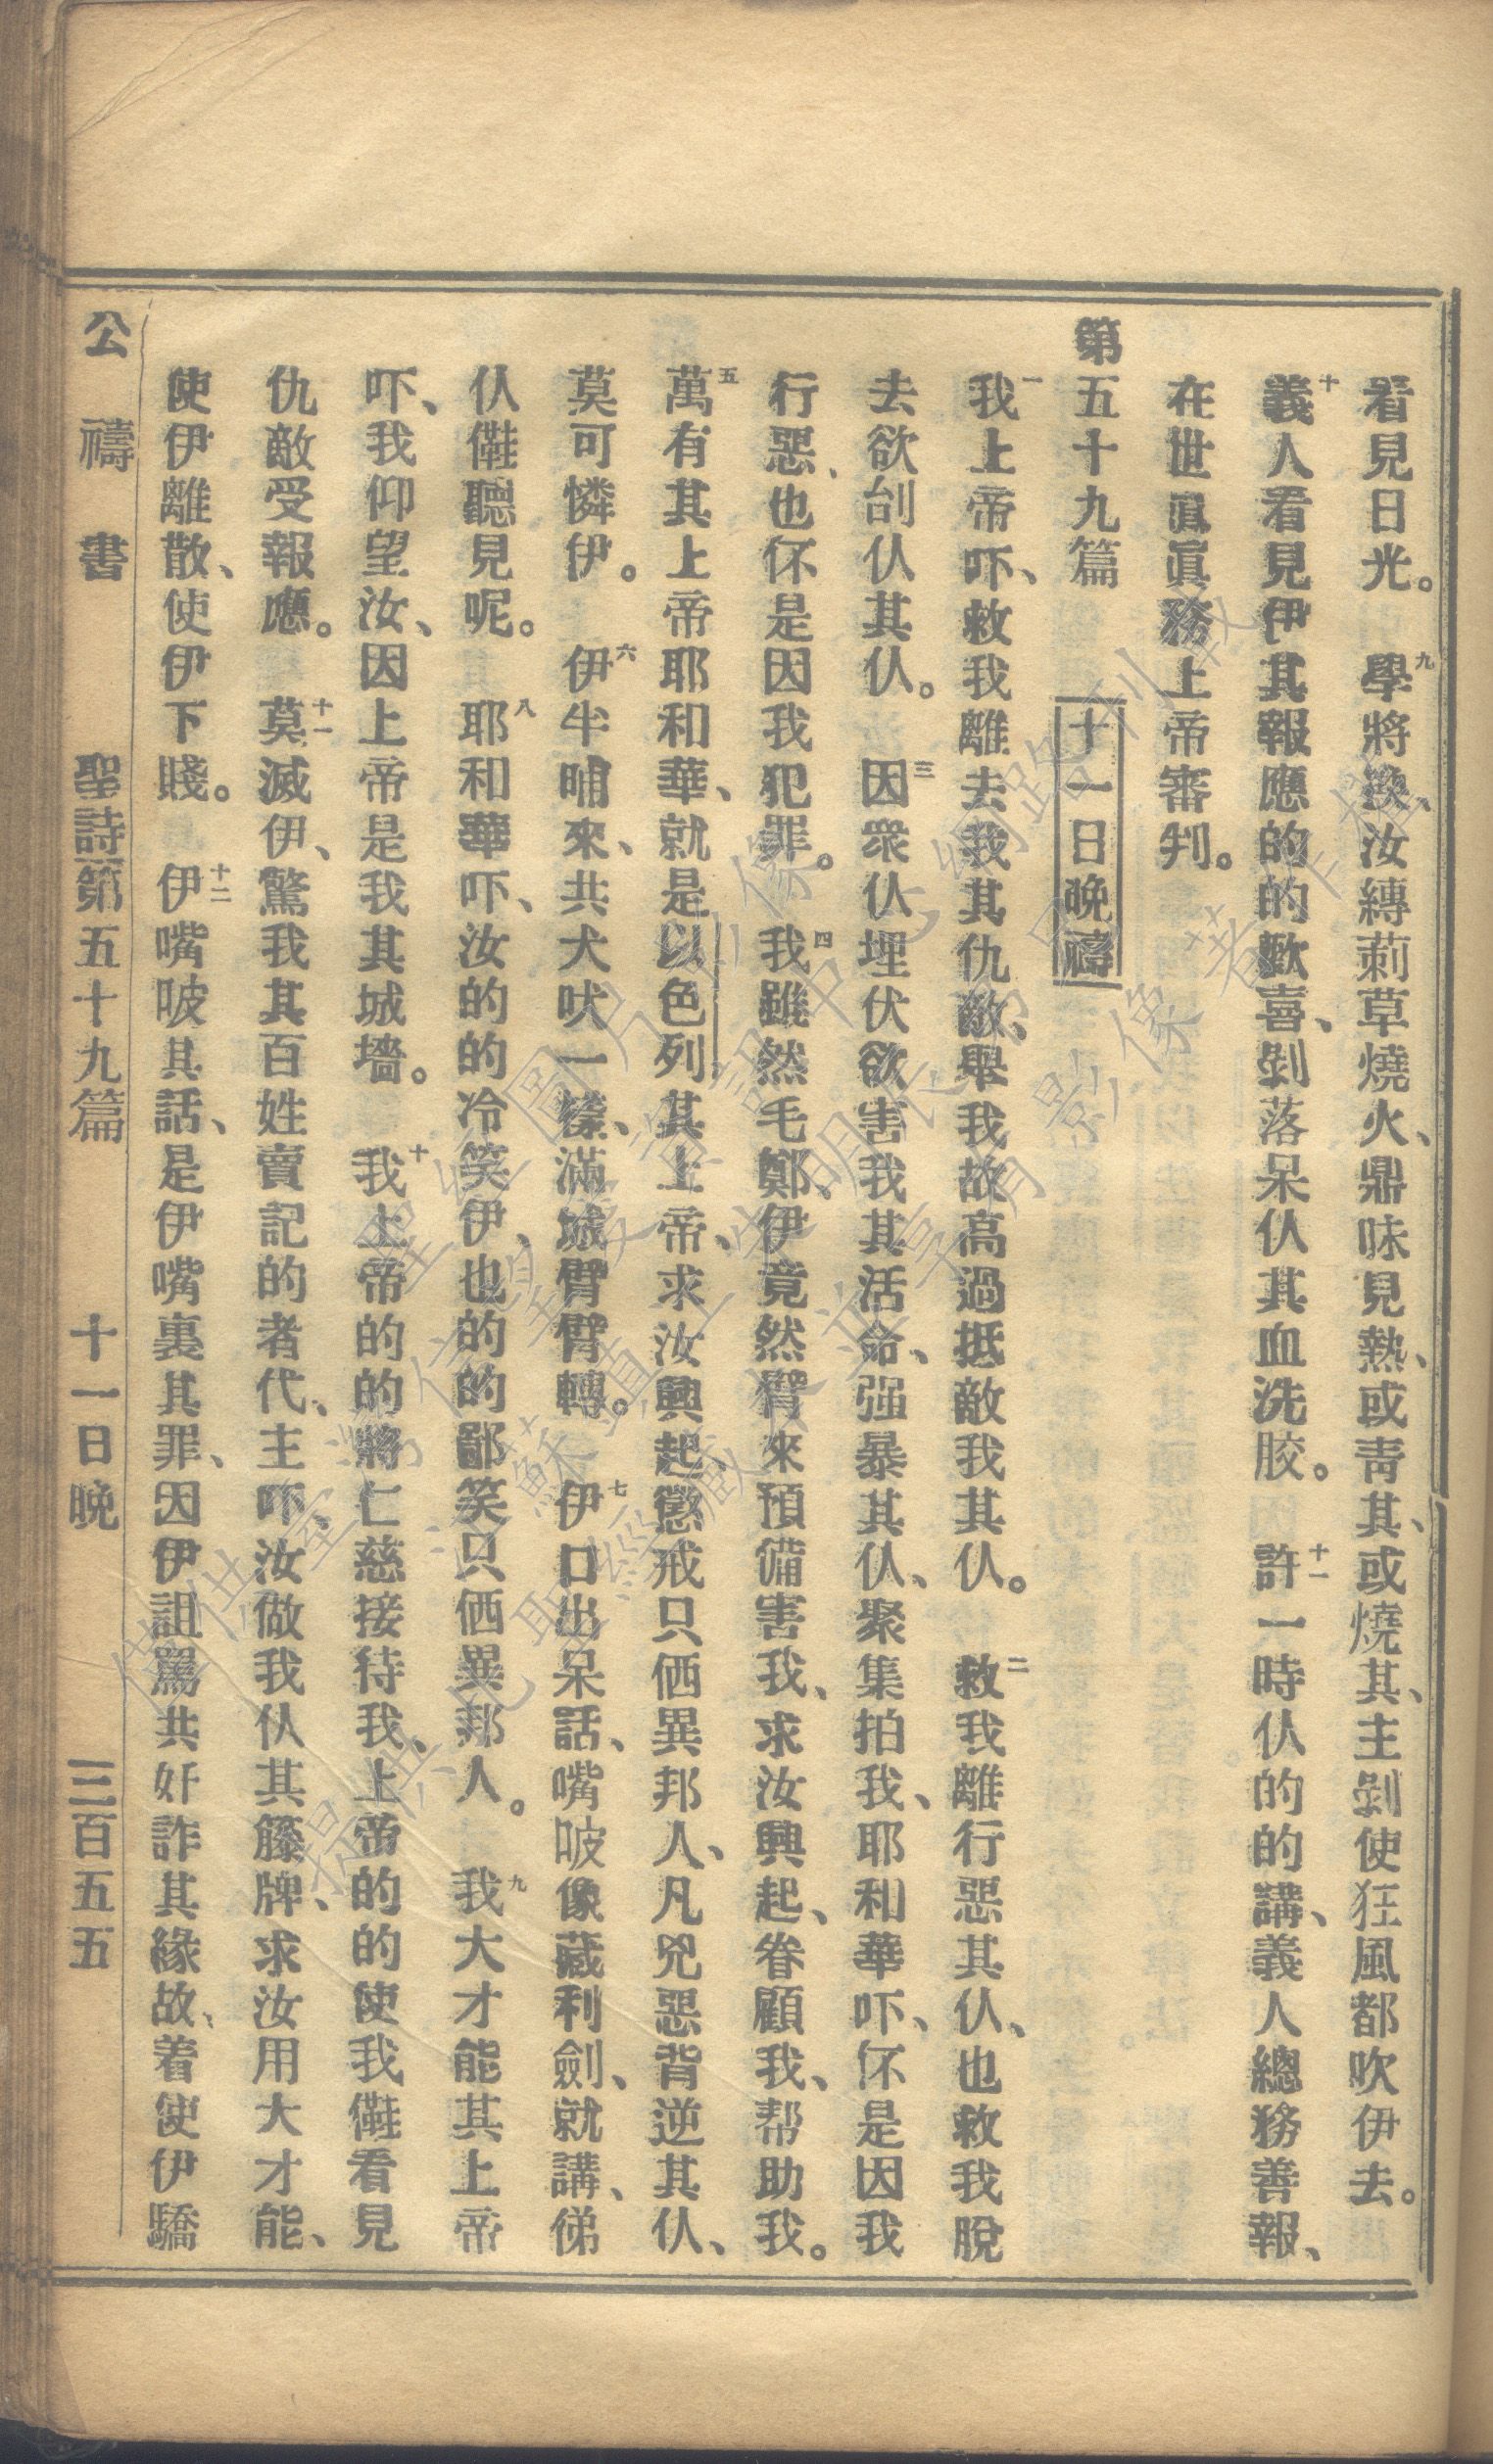 看見日光。 九學將換、汝縳莿草燒火、鼎味見熱、或靑其、或燒其、主剝使狂風都吹伊去。
十義人看見伊其報應的的歡喜、剝落呆仈其血洗胶。 十一許一時仈的的講、義人總務善報、
在世眞眞務上帝審判。
第五十九篇 十一日晚禱
一我上帝吓、救我離去我其仇敵、舉我故高過抵敵我其仈。 二救我離行惡其仈、也救我脫
去欲刣仈其仈。 三因衆仈埋伏欲害我其活命、强暴其仈、聚集拍我、耶和華吓、伓是因我
行惡、也伓是因我犯罪。 四我雖然毛鄭、伊竟然臂來預備害我、求汝興起、眷顧我、帮助我。
五萬有其上帝耶和華、就是以色列其上帝、求汝興起、懲戒只価異邦人、凡兇惡背逆其仈、
莫可憐伊。 六伊半晡來、共犬吠一樣、滿城臂臂轉。 七伊口出呆話、嘴㕰像藏利劍、就講、俤
仈儺聽見呢。 八耶和華吓、汝的的冷笑伊、也的的鄙笑只価異邦人。 九我大才能其上帝
吓、我仰望汝、因上帝是我其城墻。 十我上帝的的將仁慈接待我、上帝的的使我儺看見
仇敵受報應。 十一莫滅伊、驚我其百姓賣記的者代、主吓、汝做我仈其籐牌、求汝用大才能、
使伊離散、使伊下賤。 十二伊嘴㕰其話、是伊嘴裏其罪、因伊詛駡共奸詐其緣故、着使伊驕
公禱書 聖詩第五十九篇 十一日晚 三百五五